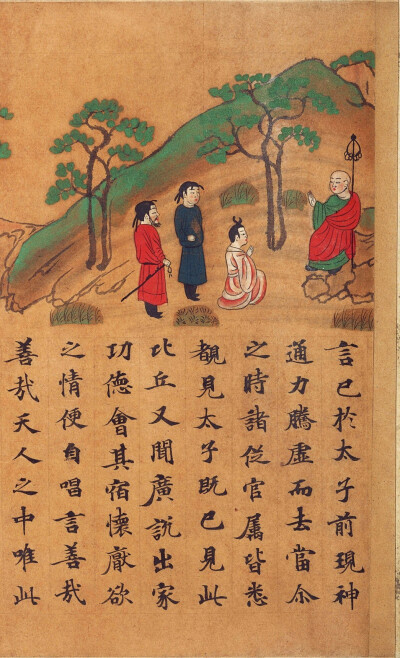 言已於太子前現神
通力騰虛而去當尒
之時諸從官属皆悉
覩見太子既已見此
比丘又聞廣説出家
功德會其宿懷厭欲
之情便自唱言善哉
善哉天人之中唯此